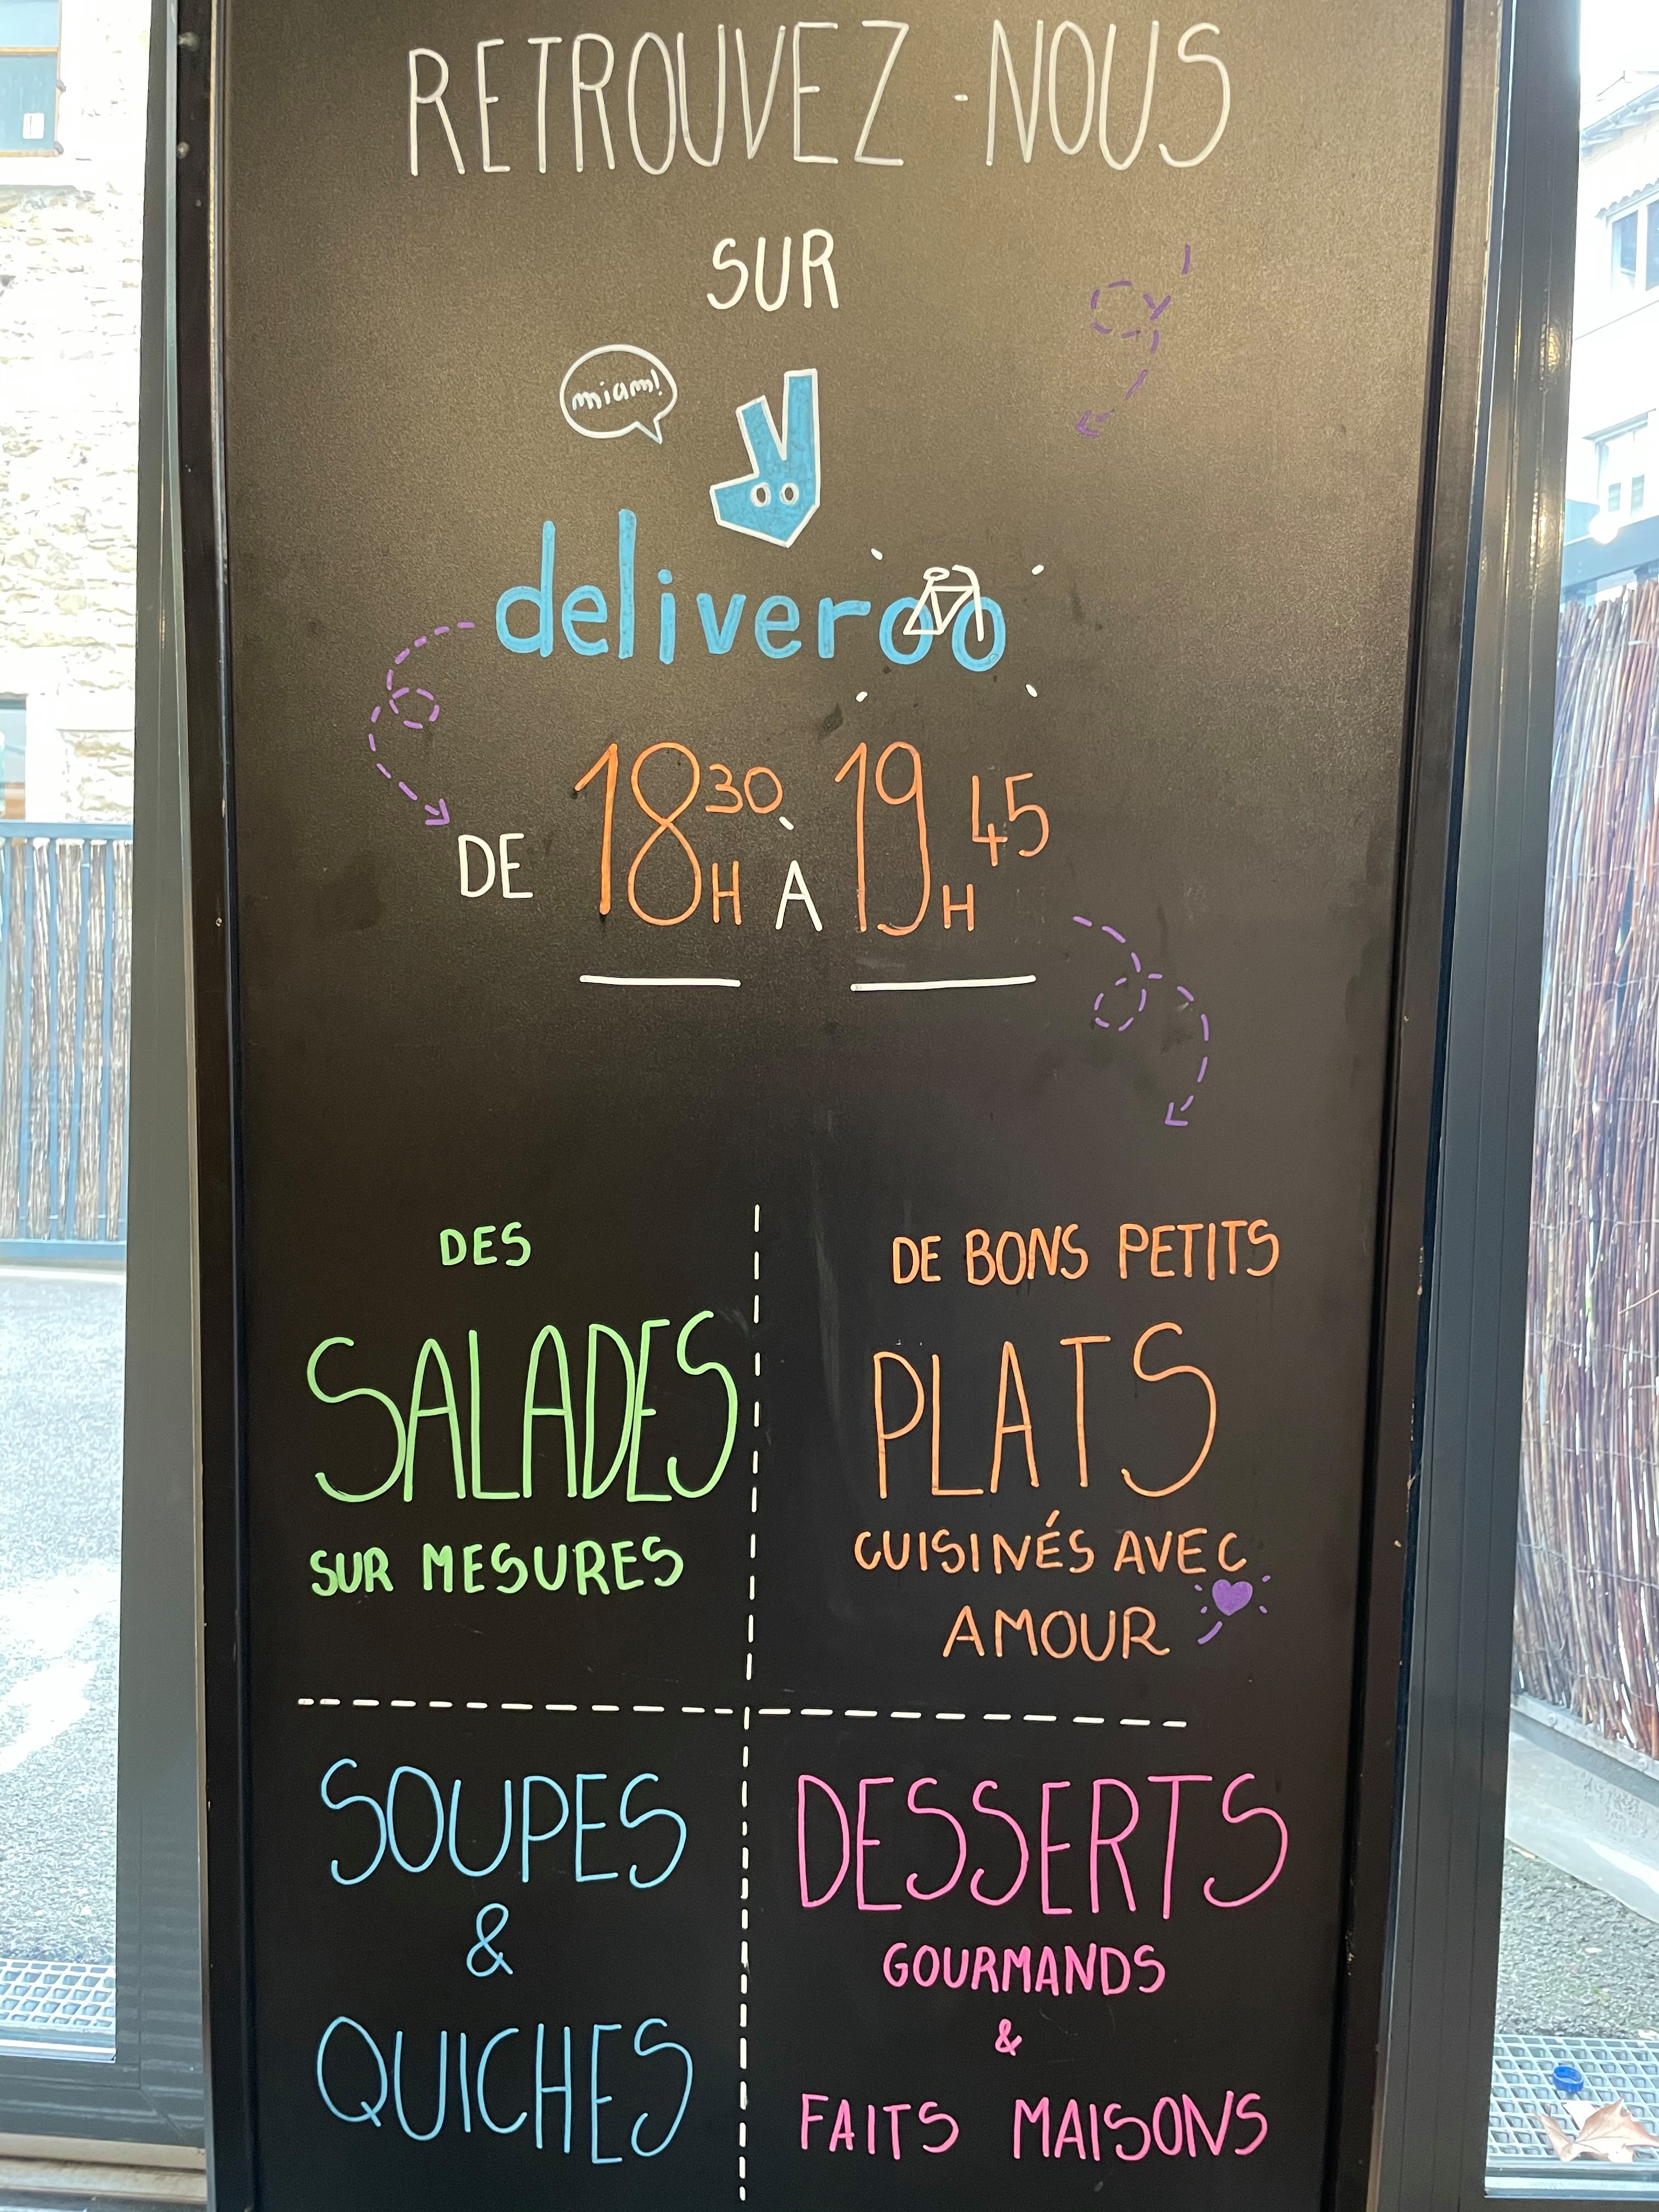 RETROUVEZ-NOUS
SUR
miam!
deliveroo
DE 18H30 À 19H45
DES
SALADES
SUR MESURES
DE BONS PETITS
PLATS
CUISINÉS AVEC
AMOUR
SOUPES
&
QUICHES
DESSERTS
GOURMANDS
&
FAITS MAISONS